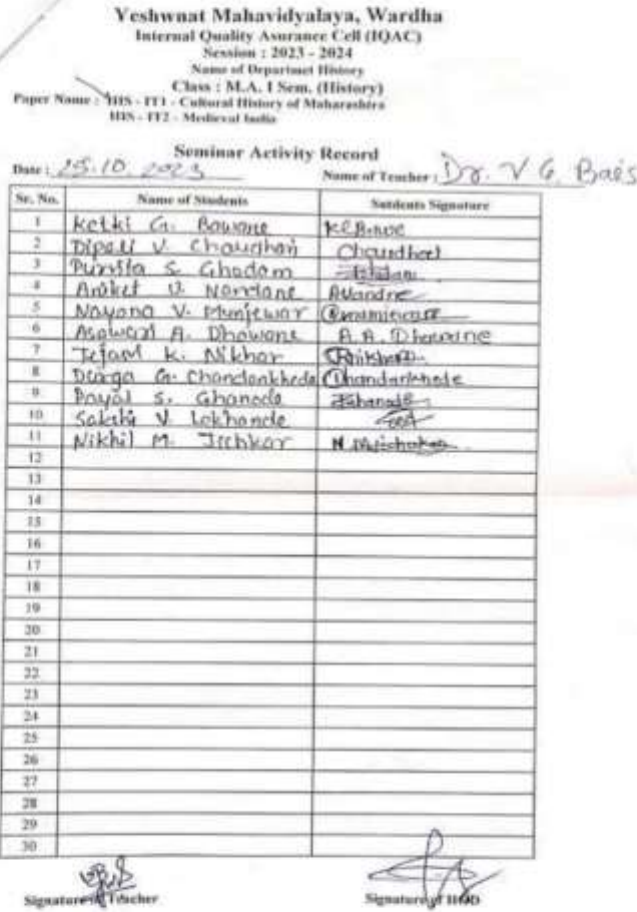 Yeshwnat Mahavidyalaya, Wardha
Internal Quality Assurance Cell (IQAC)
Session : 2023 - 2024
Name of Departmet History
Class : M.A. I Sem. (History)
Paper Name : HIS - IT1 - Cultural History of Maharashtra
HIS - IT2 - Medieval India
Seminar Activity Record
Date : 25.10.2023 Name of Teacher : Dr. V G. Bais
Sr. No. Name of Students Sutdents Signature
1 Ketki G. Bawane
2 Dipali V. Chaudhari
3 Punita S. Ghodam
4 Aniket D. Nandane
5 Nayana V. Munjewar
6 A. Dhawane A. A. Dhawane
7 K. Nikhar
8 Durga G. Chandankhede Chandankhede
9 Payal S. Ghanode
10 Sakshi V. Lokhande
11 Nikhil M. Ichkar
12
13
14
15
16
17
18
19
20
21
22
23
24
25
26
27
28
29
30
Signature of Teacher Signature of HOD